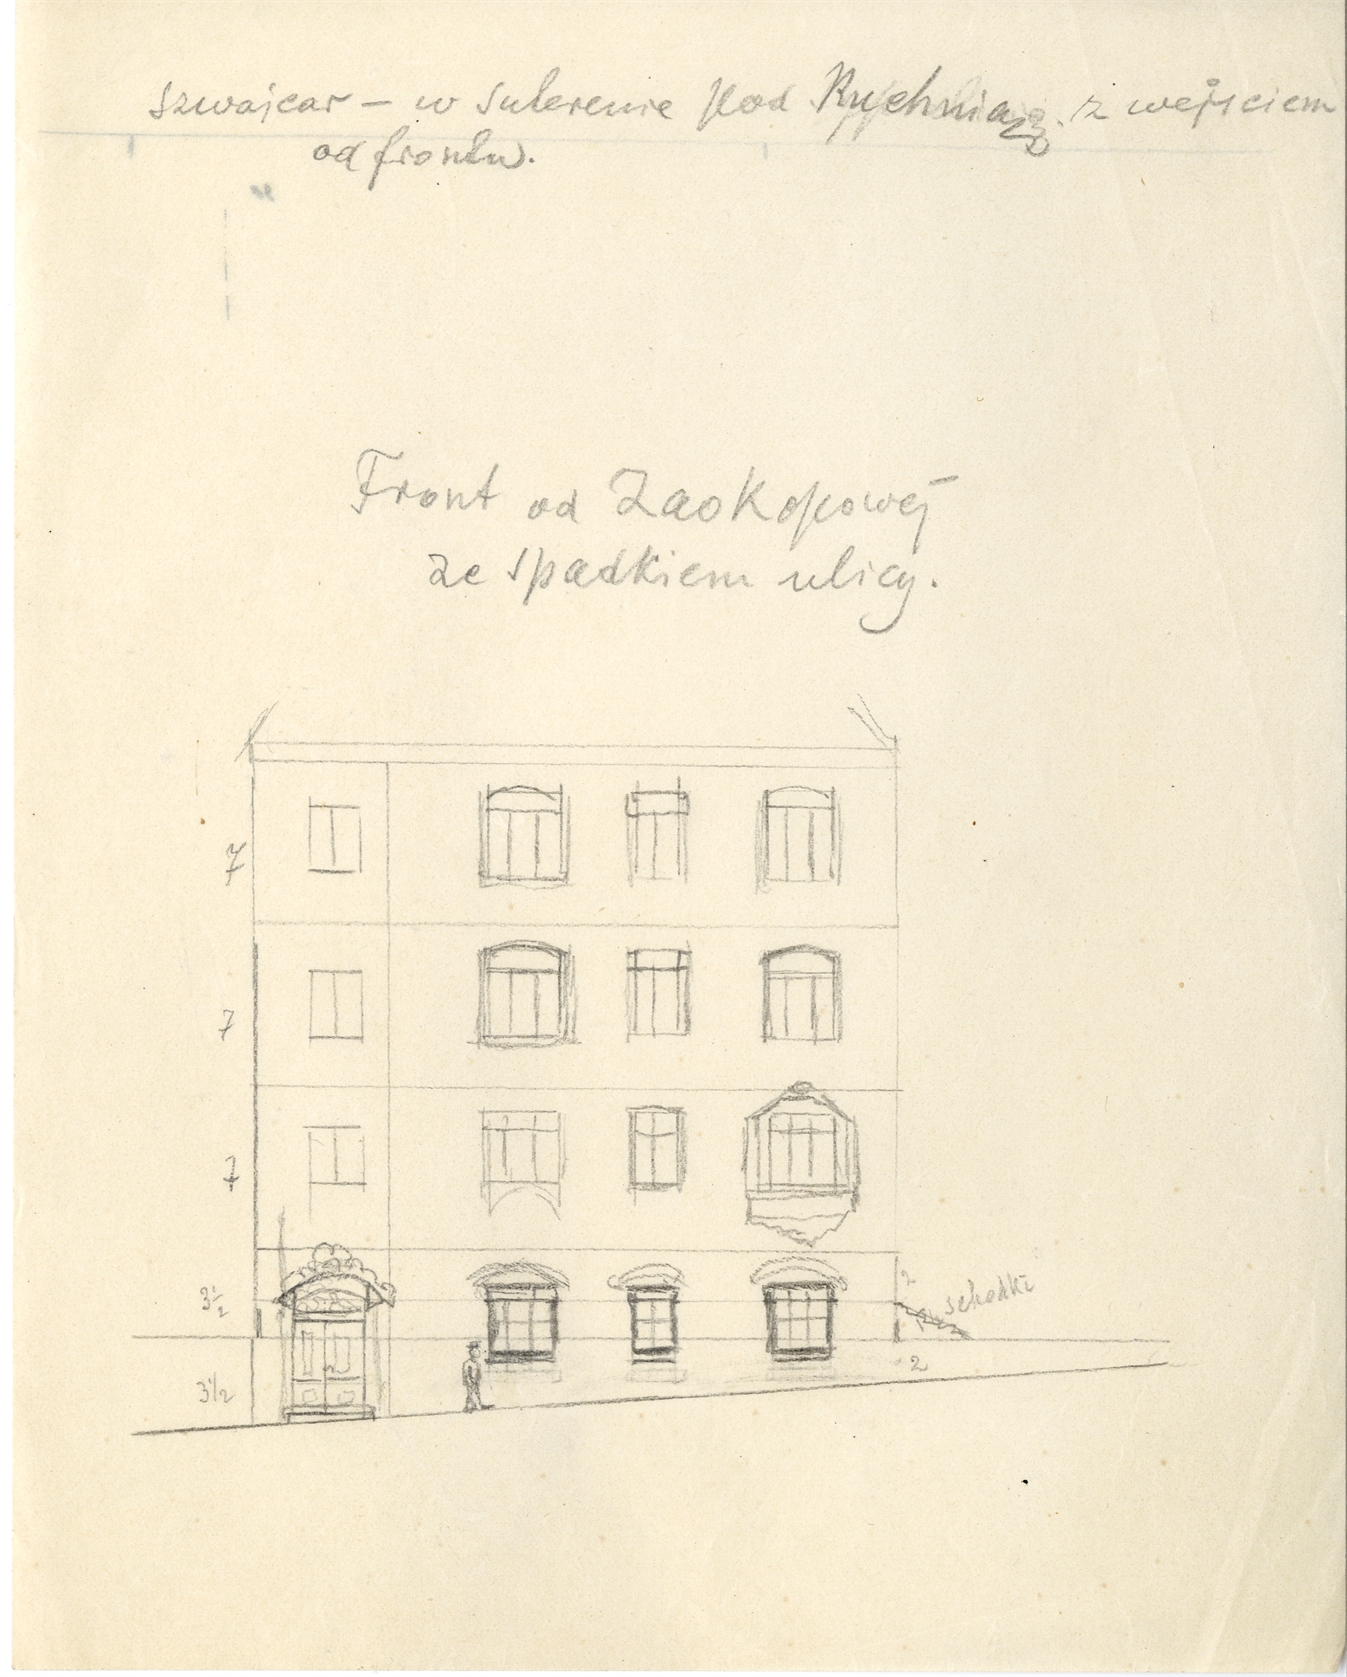 szwajcar – w suterenie pod Kuchnią z wejściem
od frontu.
Front od Zaokopowéj
ze spadkiem ulicy.
7
7
7
3½
2
schodki
2
3½